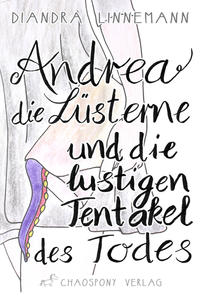 DIANDRA LINNEMANN
Andrea
die Lüsterne
und die
lustigen
Tentakel
des Todes
CHAOSPONY VERLAG